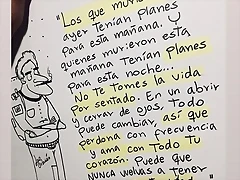 "Los que murieron
ayer Tenían Planes
para esta mañana. Y
quienes murieron esta
mañana Tenían Planes
para esta noche...
No Te Tomes la vida
Por sentado. En un abrir
y cerrar de ojos, Todo
Puede cambiar, así que
perdona con frecuencia
y ama con Todo Tu
corazón. Puede que
Nunca vuelvas a Tener